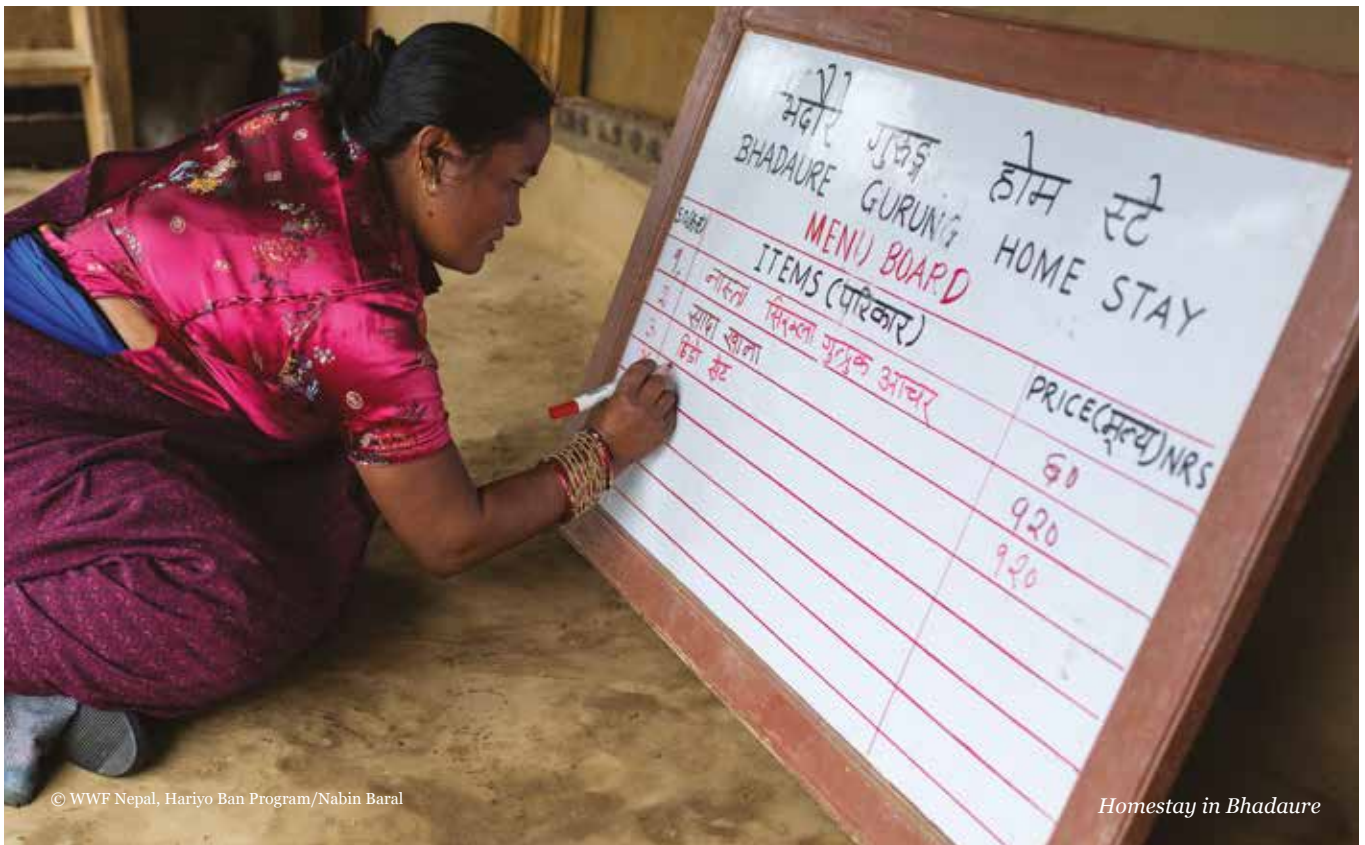 भदौरे गुरुङ्ग होम स्टे
BHADAURE GURUNG HOME STAY
MENU BOARD
ITEMS (परिकार) PRICE(मूल्य)NRS
१. नास्ता सिरम्ला गुन्द्रुक आचार ६०
२ सादा खाना १२०
३ ढिडो सेट १२०
© WWF Nepal, Hariyo Ban Program/Nabin Baral
Homestay in Bhadaure